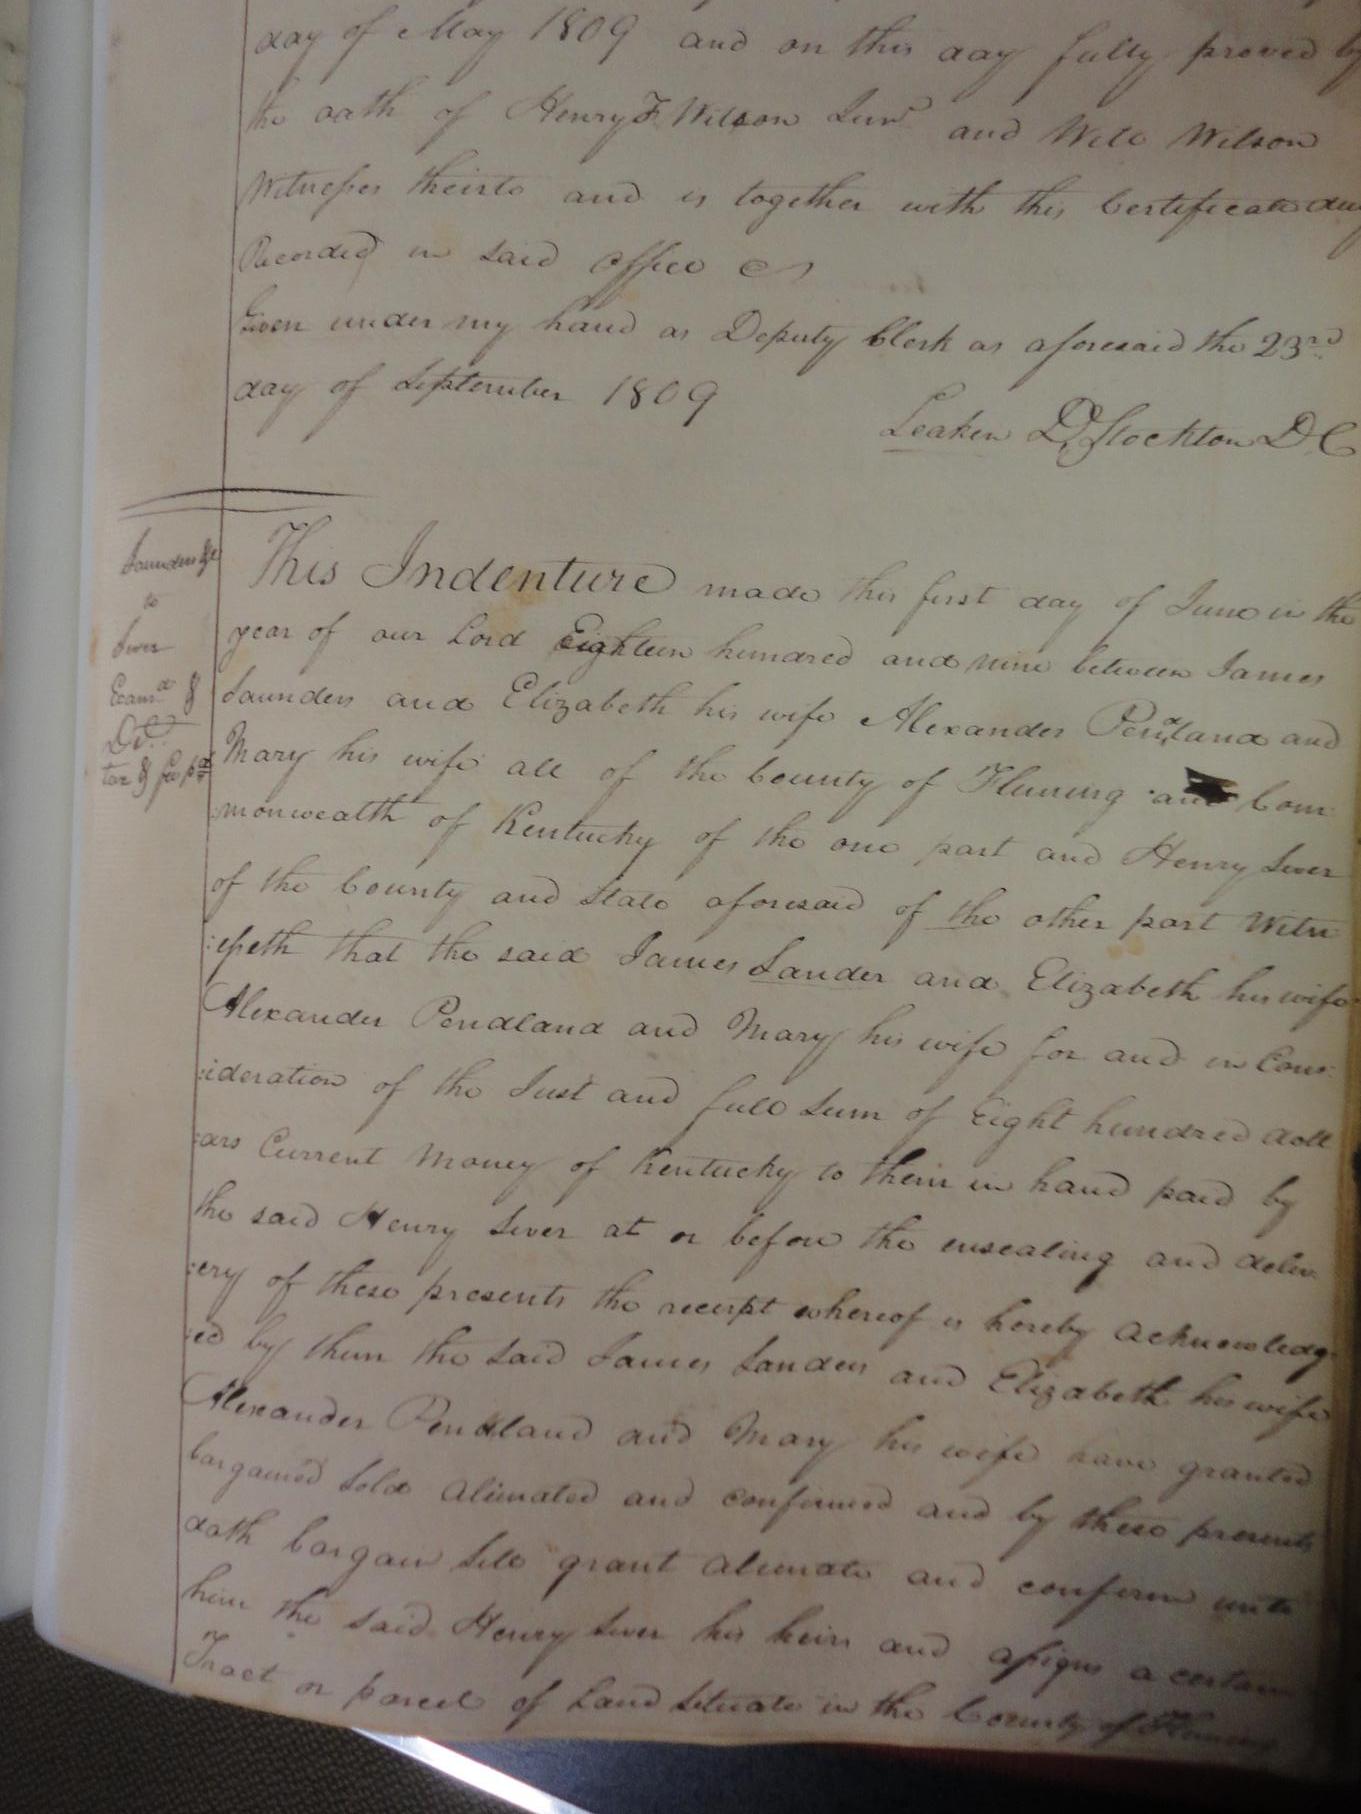 day of May 1809 and on this day fully proved by
the oath of Henry F Wilson Junr and Will Wilson
Witnesses theirto and is together with this Certificate duly
Recorded in said office
Given under my hand as Deputy Clerk as aforesaid the 23rd
day of September 1809
Leaken D Stockton D.C
Saunders &c
to
Sever
Examd &
Dd
tax & fee pd
This Indenture made this first day of June in the
year of our Lord Eighteen hundred and nine between James
Saunders and Elizabeth his wife Alexander Pendland and
Mary his wife all of the County of Fleming and Com
monwealth of Kentucky of the one part and Henry Sever
of the County and State aforesaid of the other part Witn
:esseth that the said James Sander and Elizabeth his wife
Alexander Pendland and Mary his wife for and in Cons:
:ideration of the Just and full Sum of Eight hundred doll
:ars Current Money of Kentucky to them in hand paid by
the said Henry Sever at or before the ensealing and deliv
:ery of these presents the receipt whereof is hereby acknowledg
:ed by them the said James Sanders and Elizabeth his wife
Alexander Pendland and Mary his wife have granted
bargained Sold alienated and confirmed and by these presents
doth bargain Sell grant alienate and confirm unto
him the said Henry Sever his heirs and assigns a certain
Tract or parcel of Land Situate in the County of Fleming